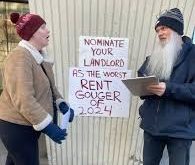 NOMINATE
YOUR
LANDLORD
AS THE WORST
RENT
GOUGER
OF 2024